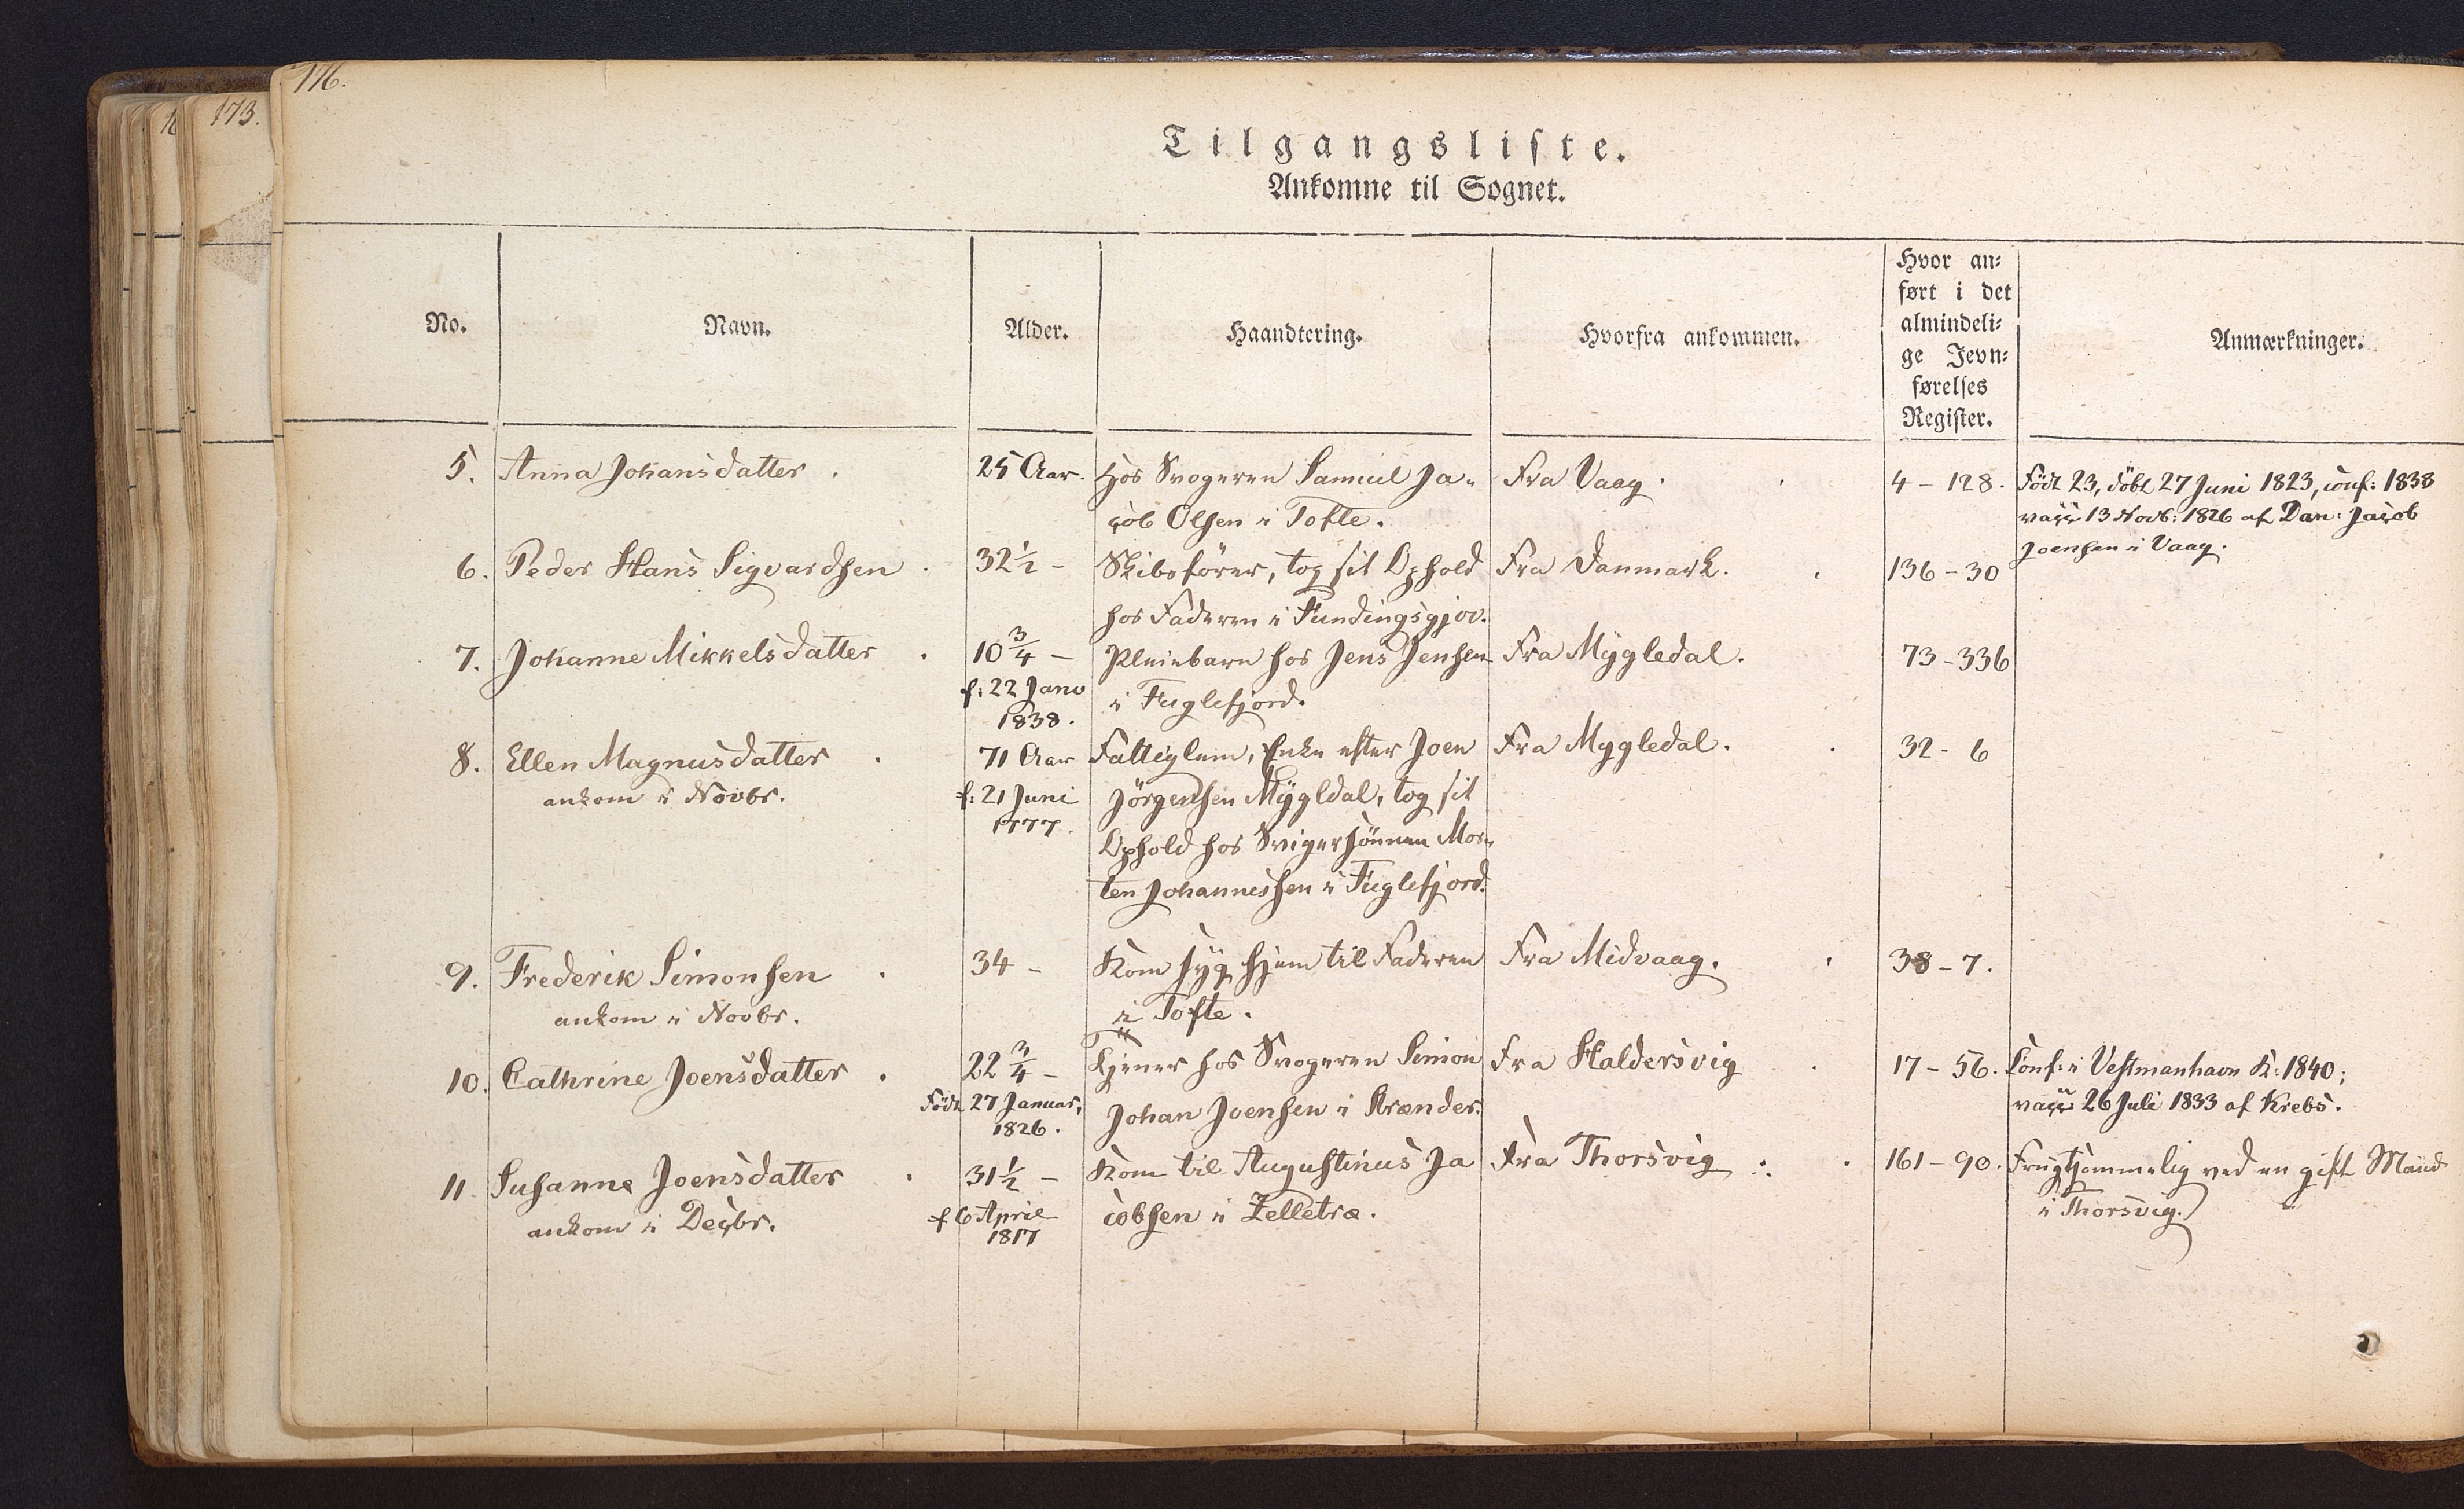 176.
173.
Tilgangsliste.
Ankomne til Sognet.
No.
Navn.
Alder.
Haandtering.
Hvorfra ankommen.
Hvor an-
ført i det
almindeli-
ge Jevn-
førelses
Register.
Anmærkninger.
5. Anna Johansdatter. 25 Aar. Hos Svogeren Samuel Ja- Fra Vaag. 4 - 128. Födt 23, döbt 27 Juni 1823, conf: 1838
cob Olsen i Tofte. vacc 13 Novb: 1826 af Dan: Jacob
Joensen i Vaag.
6. Peder Hans Sigvardsen. 32 1/2 - Skibsförer, tog sit Ophold Fra Danmark. 136 - 30
hos Faderen i Fundingsgjov.
7. Johanne Mikkelsdatter. 10 3/4 - Pleiebarn hos Jens Jensen Fra Mygledal. 73 - 336
f: 22 Janv i Fuglefjord.
1838.
8. Ellen Magnusdatter. 71 Aar Fattiglem, Enke efter Joen Fra Mygledal. 32 - 6
ankom i Novbr. f: 21 Juni Jörgensen Mygldal, tog sit
1777. Ophold hos Svigersönnen Mor-
ten Johannessen i Fuglefjord.
9. Frederik Simonsen. 34 - Kom syg hjem til Faderen Fra Midvaag. 38 - 7.
ankom i Novbr. i Tofte.
10. Cathrine Joensdatter. 22 3/4 - Tjener hos Svogeren Simon Fra Haldersvig 17 - 56. Conf: i Vestmanhavn K: 1840;
Födt 27 Januar, Johan Joensen i Strænder. vacc 26 Juli 1833 af Krebs.
1826.
11. Susanne Joensdatter. 31 1/2 - Kom til Augustinus Ja Fra Thorsvig 161 - 90. Frugtsommelig ved en gift Mand
ankom i Decbr. f 6 April cobsen i Zelletræ. i Thorsvig.
1817